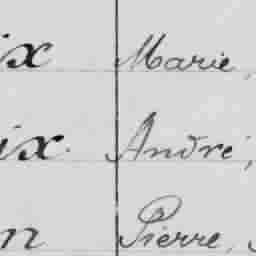 ix Marie,
ix. André,
n Pierre,